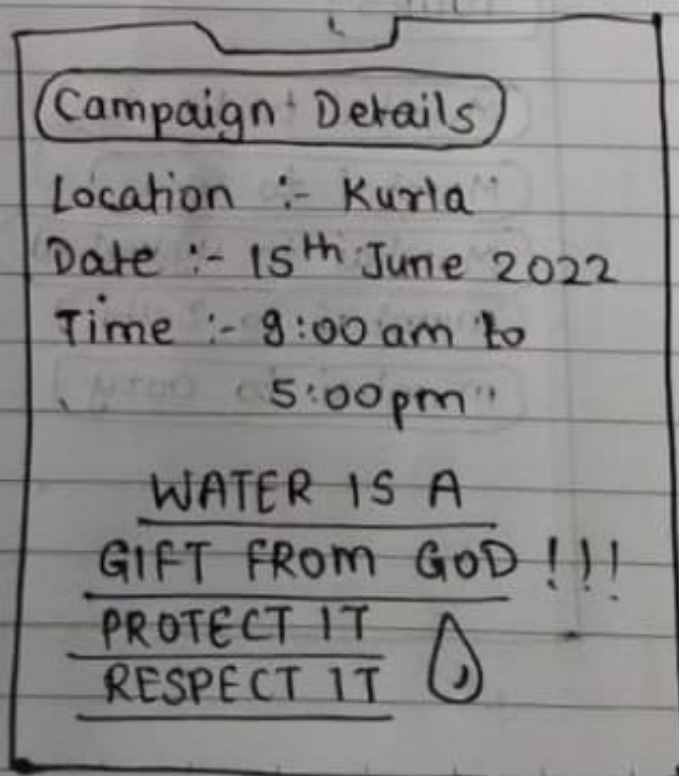 Campaign Details
Location :- Kurla
Date :- 15th June 2022
Time :- 9:00 am to
5:00pm
WATER IS A
GIFT FROM GOD !!!
PROTECT IT
RESPECT IT